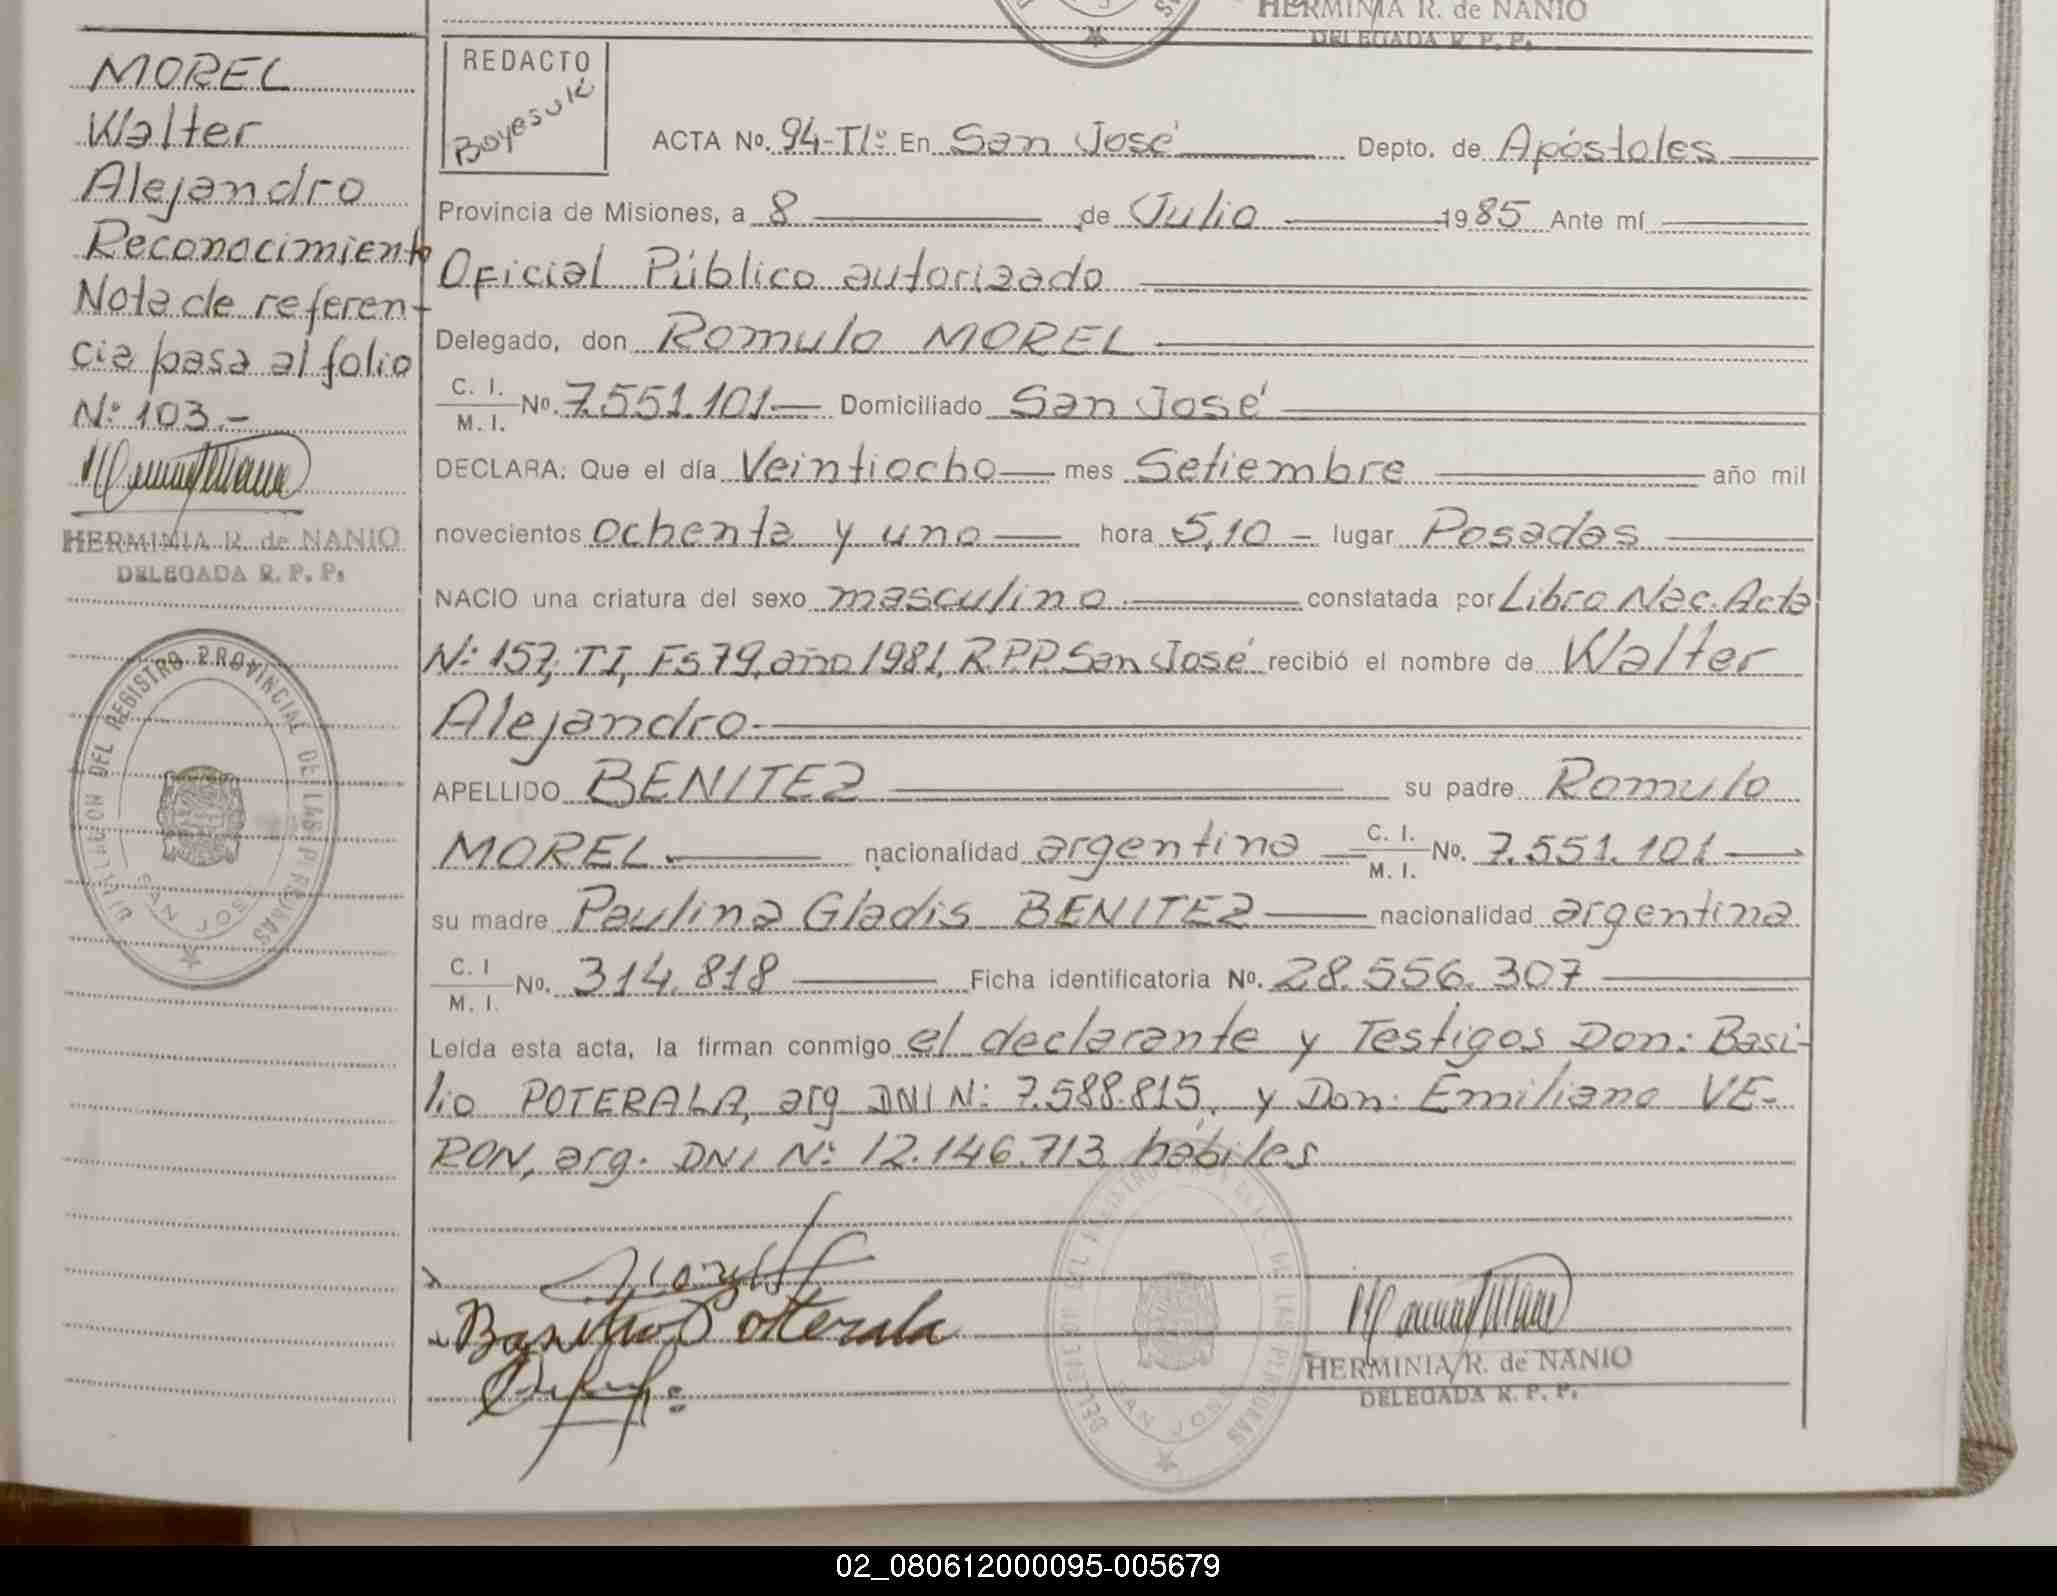 HERMINIA R. de NANIO
DELEGADA R. P. P.
MOREL
Walter
Alejandro
Reconocimiento
Nota de referen-
cia pasa al folio
Nº 103.-
HERMINIA R. de NANIO
DELEGADA R. P. P.
DELEGACION DEL REGISTRO PROVINCIAL DE LAS PERSONAS
SAN JOSE
REDACTO
Boyesuk
ACTA No. 94-TIº En San José Depto. de Apóstoles
Provincia de Misiones, a 8 de Julio 1985 Ante mí
Oficial Público autorizado
Delegado, don Romulo MOREL
C. I. / M. I. No. 7.551.101 Domiciliado San José
DECLARA: Que el día Veintiocho mes Setiembre año mil
novecientos ochenta y uno hora 5,10 lugar Posadas
NACIO una criatura del sexo masculino constatada por Libro Nac. Acta
Nº 157, TI, Fs 79, año 1981, R.P.P. San José recibió el nombre de Walter
Alejandro
APELLIDO BENITEZ su padre Romulo
MOREL nacionalidad argentina C. I. / M. I. No. 7.551.101
su madre Paulina Gladis BENITEZ nacionalidad argentina
C. I / M. I. No. 314.818 Ficha identificatoria No. 28.556.307
Leída esta acta, la firman conmigo el declarante y Testigos Don: Basi-
lio POTERALA, arg DNI Nº 7.588.815, y Don: Emiliano VE-
RON, arg. DNI Nº 12.146.713 hábiles
Basilio Poterala
DELEGACION DEL REGISTRO PROVINCIAL DE LAS PERSONAS
SAN JOSE
HERMINIA R. de NANIO
DELEGADA R. P. P.
02_080612000095-005679